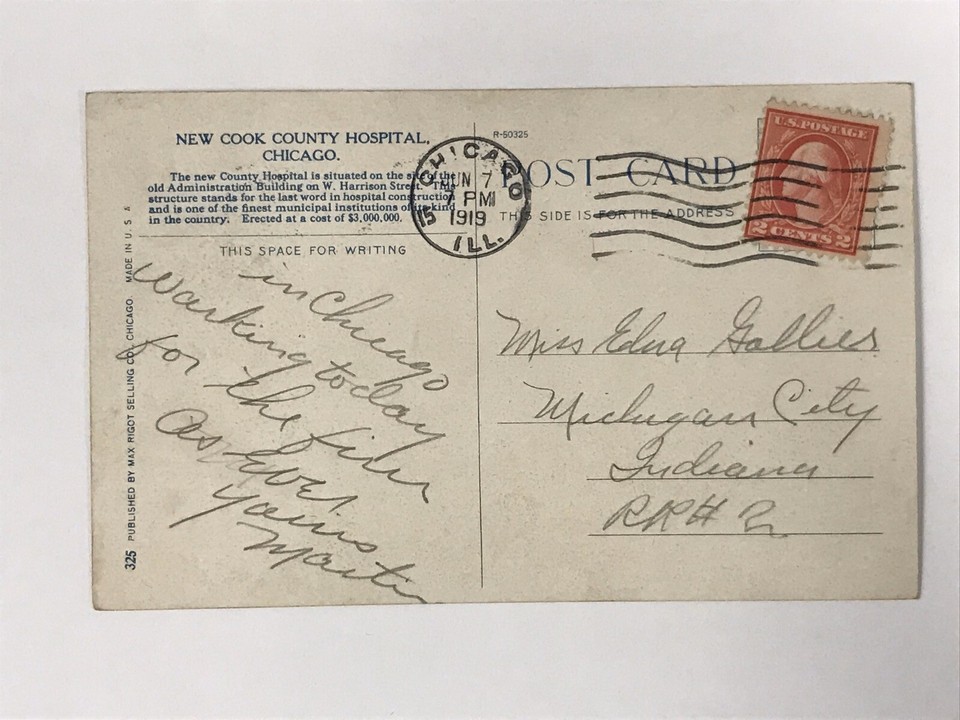 NEW COOK COUNTY HOSPITAL,
CHICAGO.
The new County Hospital is situated on the site of the
old Administration Building on W. Harrison Street. The
structure stands for the last word in hospital construction
and is one of the finest municipal institutions of its kind
in the country. Erected at a cost of $3,000,000.
THIS SPACE FOR WRITING
in Chicago
Working today
for the firm
as
Yours
Martin
325 PUBLISHED BY MAX RIGOT SELLING CO., CHICAGO. MADE IN U. S. A.
R-50325
CHICAGO
JUN 7
PM
15 1919
ILL.
POST CARD
THIS SIDE IS FOR THE ADDRESS
U.S. POSTAGE
2 CENTS 2
Miss Edna Gallies
Michigan City
Indiana
RR# 2